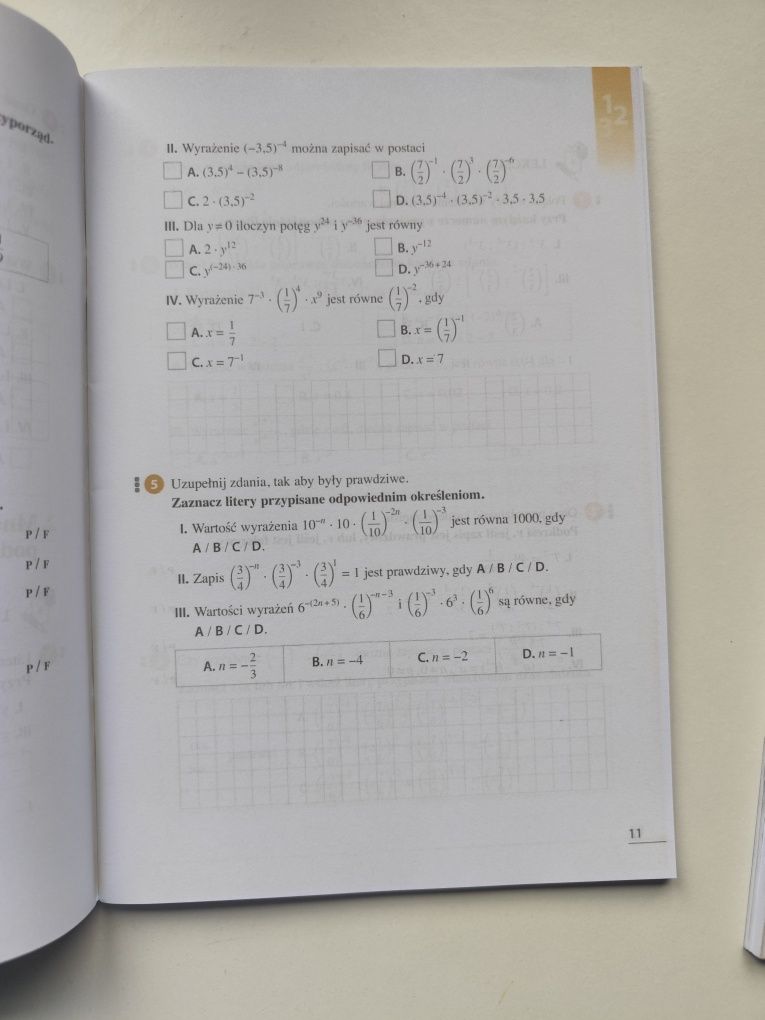 yporząd.
P / F
P / F
P / F
P / F
1
2
3
II. Wyrażenie (−3,5)⁻⁴ można zapisać w postaci
A. (3,5)⁴ − (3,5)⁻⁸ B. (7/2)⁻¹ · (7/2)³ · (7/2)⁻⁶
C. 2 · (3,5)⁻² D. (3,5)⁻⁴ · (3,5)⁻² · 3,5 · 3,5
III. Dla y ≠ 0 iloczyn potęg y²⁴ i y⁻³⁶ jest równy
A. 2 · y¹² B. y⁻¹²
C. y⁽⁻²⁴⁾ · ³⁶ D. y⁻³⁶⁺²⁴
IV. Wyrażenie 7⁻³ · (1/7)⁴ · x⁹ jest równe (1/7)⁻², gdy
A. x = 1/7 B. x = (1/7)⁻¹
C. x = 7⁻¹ D. x = 7
5 Uzupełnij zdania, tak aby były prawdziwe.
Zaznacz litery przypisane odpowiednim określeniom.
I. Wartość wyrażenia 10⁻ⁿ · 10 · (1/10)⁻²ⁿ · (1/10)⁻³ jest równa 1000, gdy
A / B / C / D.
II. Zapis (3/4)⁻ⁿ · (3/4)⁻³ · (3/4)¹ = 1 jest prawdziwy, gdy A / B / C / D.
III. Wartości wyrażeń 6⁻⁽²ⁿ⁺⁵⁾ · (1/6)⁻ⁿ⁻³ i (1/6)⁻³ · 6³ · (1/6)⁶ są równe, gdy
A / B / C / D.
A. n = −2/3 B. n = −4 C. n = −2 D. n = −1
11